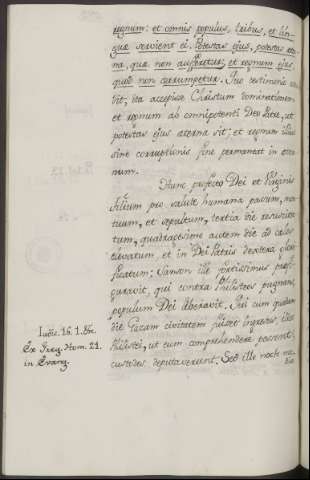 regnum: et omnis populus, tribus, et lin-
guæ servient ei. Potestas ejus, potestas æter-
na, quæ non auferetur; et regnum ejus
quod non corrumpetur. Quo testimonio
bit; ita accepisse Christum dominationem
et regnum ab omnipotenti Deo Patre, ut
potestas ejus æterna sit; et regnum illius
sine corruptionis fine permaneat in æter-
num.
Hunc profecto Dei et Virginis
filium pro salute humana passum, mor-
tuum, et sepultum, tertia die resuscita-
tum, quadragesimo autem die ad cælos
elevatum, et in Dei Patris dextera glori-
ficatum: Sanson ille fortissimus præfi-
guravit, qui contra Philistæos pugnans,
populum Dei liberavit. Qui cum quadam
die Gazam civitatem fuisset ingressus,
Philistæi, ut eum comprehendere possent,
custodes deputaverunt. Sed ille nocte me-
dia
Iudic. 16. 1.
Ex Greg. Hom. 21.
in Evang.